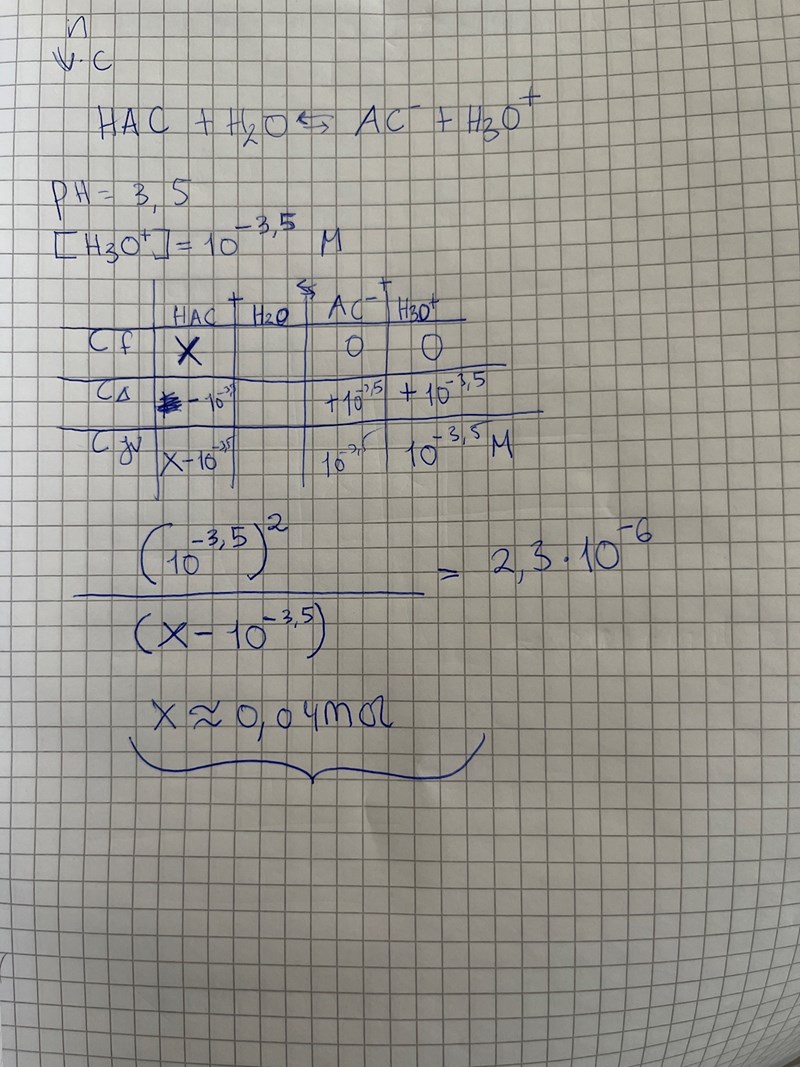 n
↓ · C
HAC + H2O ⇆ AC⁻ + H3O⁺
PH = 3,5
[H3O⁺] = 10^-3,5 M
HAC + H2O ⇆ AC⁻ + H3O⁺
Cf X 0 0
CΔ -10^-3,5 +10^-3,5 +10^-3,5
Cjv X-10^-3,5 10^-3,5 10^-3,5 M
(10^-3,5)² / (X - 10^-3,5) = 2,3·10^-6
X ≈ 0,04 mol